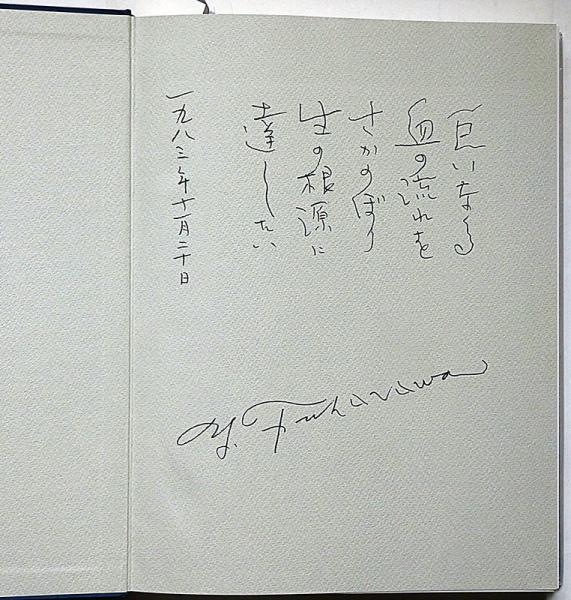 巨いなる
血の流れを
さかのぼり
生の根源に
達したい
一九八三年十一月二十日
Y. Fukuzawa